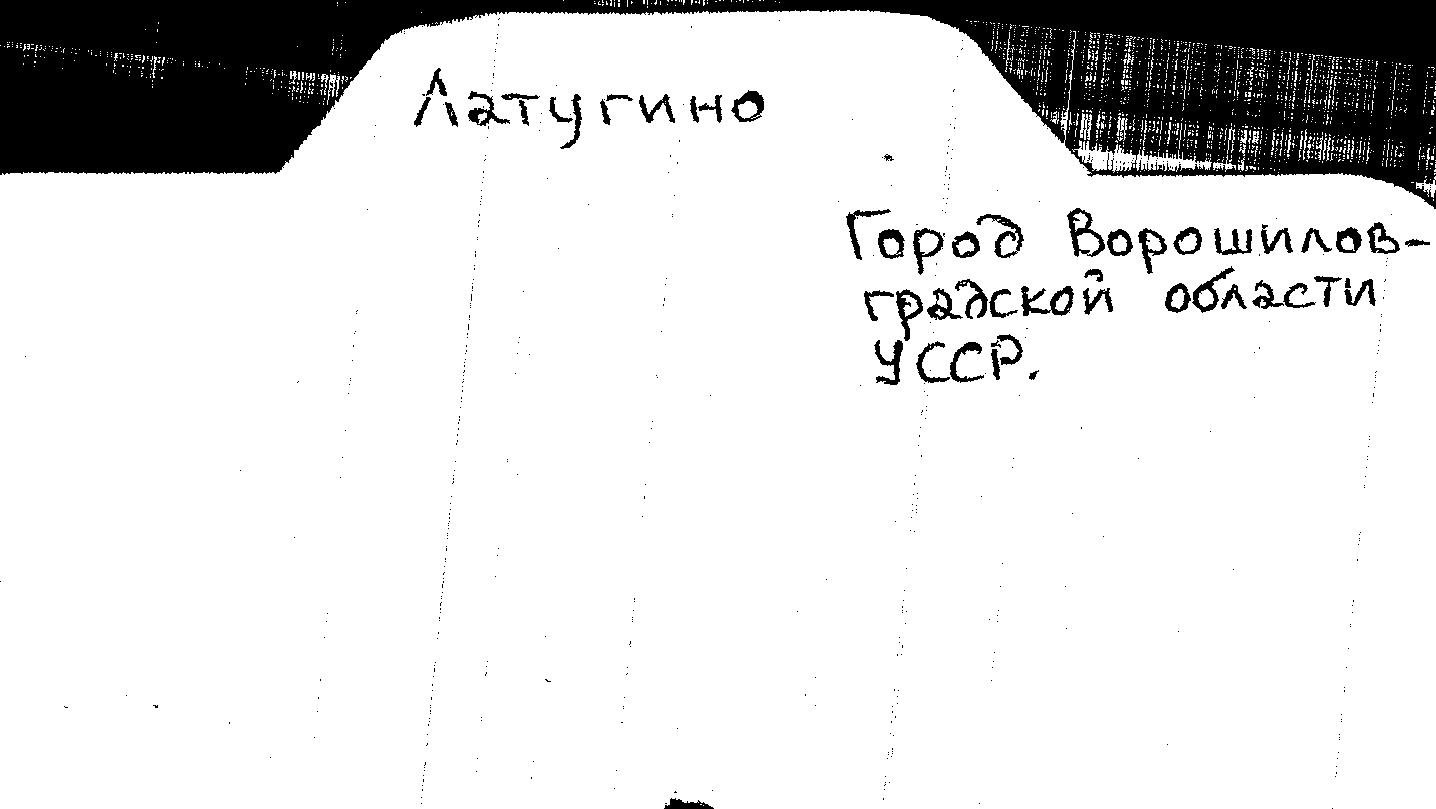 Латугино
Город Ворошилов-
градской области
УССР.